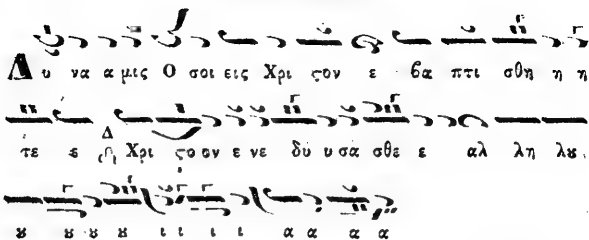 Δυ να α μις Ο σοι εις Χρι ςον ε βα πτι σθη η η
τε ε Δ Χρι ςο ον ε νε δυ υ σα σθε ε αλ λη λου
ου ου ου ου ι ι ι ι α α α α